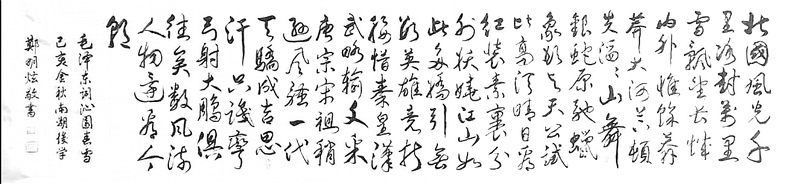 北國風光千
里冰封萬里
雪飄望长城
内外惟餘莽
莽大河上下頓
失滔滔山舞
銀蛇原馳蠟
象欲与天公試
比高须晴日看
红装素裹分
外妖娆江山如
此多嬌引無
数英雄竞折
腰惜秦皇漢
武略输文采
唐宗宋祖稍
遜风骚一代
天驕成吉思
汗只識彎
弓射大鵰俱
往矣数风流
人物還看今
朝
毛泽东词沁园春雪
己亥金秋南湖後学
鄭明炫敬書